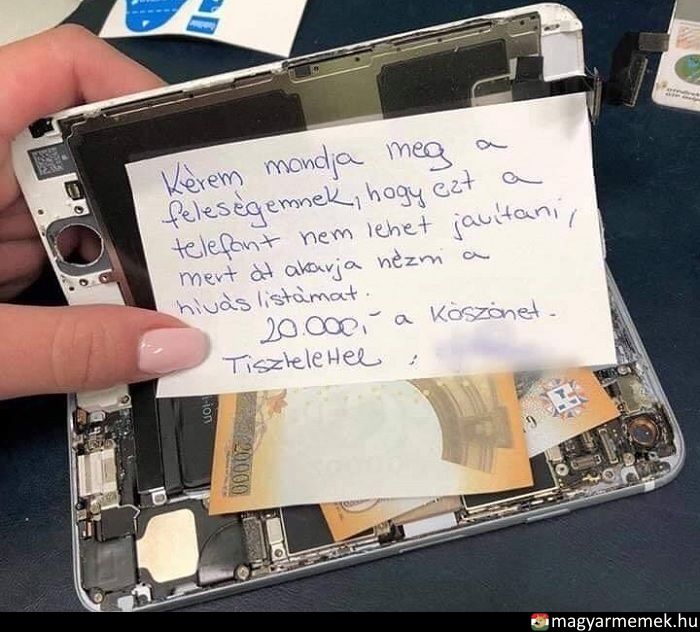 Kérem mondja meg a
feleségemnek, hogy ezt a
telefont nem lehet javítani,
mert át akarja nézni a
hívás listámat.
20.000,- a köszönet.
Tisztelettel :
Li-ion
20000
magyarmemek.hu